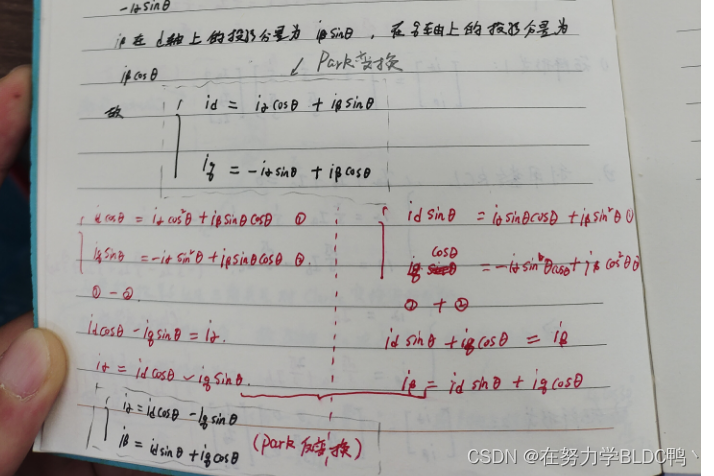 -iα sinθ
iβ 在 d 轴上的投影分量为 iβ sinθ , 在 q 轴上的投影分量为
iβ cosθ
Park变换
故
id = iα cosθ + iβ sinθ
iq = -iα sinθ + iβ cosθ
id cosθ = iα cos²θ + iβ sinθ cosθ ①
iq sinθ = -iα sin²θ + iβ sinθ cosθ ②.
① - ②.
id cosθ - iq sinθ = iα.
iα = id cosθ - iq sinθ.
id sinθ = iα sinθ cosθ + iβ sin²θ ①
iq cosθ = -iα sinθ cosθ + iβ cos²θ ②
① + ②
id sinθ + iq cosθ = iβ
iβ = id sinθ + iq cosθ
iα = id cosθ - iq sinθ
iβ = id sinθ + iq cosθ
(Park 反变换)
CSDN @在努力学BLDC鸭